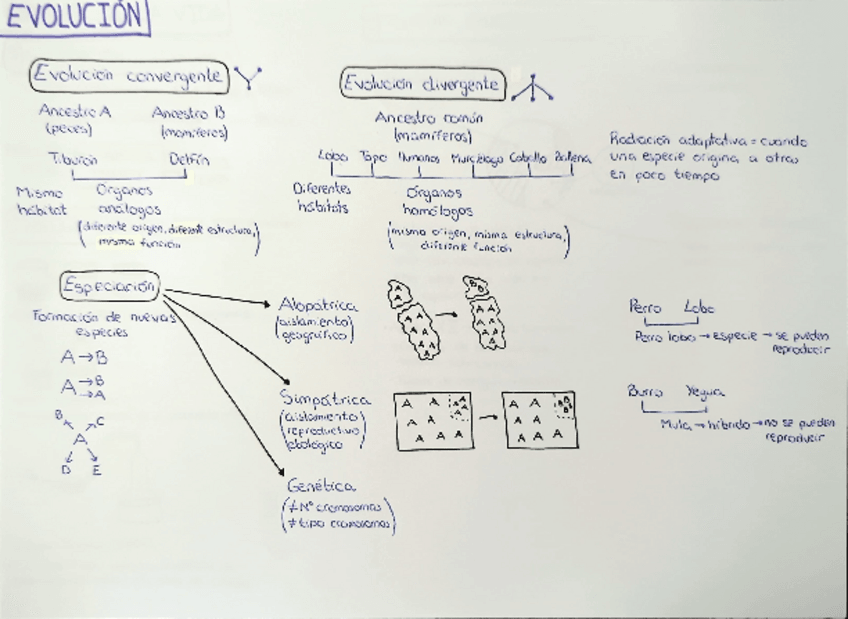 EVOLUCIÓN
Evolución convergente
Ancestro A
(peces)
Ancestro B
(mamíferos)
Tiburón
Delfín
Mismo
hábitat
Órganos
análogos
(diferente origen, diferente estructura,
misma función)
Evolución divergente
Ancestro común
(mamíferos)
Lobo Topo Humanos Murciélago Caballo Ballena
Diferentes
hábitats
Órganos
homólogos
(mismo origen, misma estructura,
diferente función)
Radiación adaptativa = cuando
una especie origina a otra
en poco tiempo
Especiación
Formación de nuevas
especies
A → B
A → B
→ A
B C
A
D E
Alopátrica
(aislamiento
geográfico)
A
A
A A
A A
A A
A
B B
A A
A A
A A
A
Simpátrica
(aislamiento
reproductivo
ecológico)
A A A A
A A A
A A A
A A B B
A A B
A A A
Genética
(≠ Nº cromosomas
≠ tipo cromosomas)
Perro Lobo
Perro lobo → especie → se pueden
reproducir
Burro Yegua
Mula → híbrido → no se pueden
reproducir